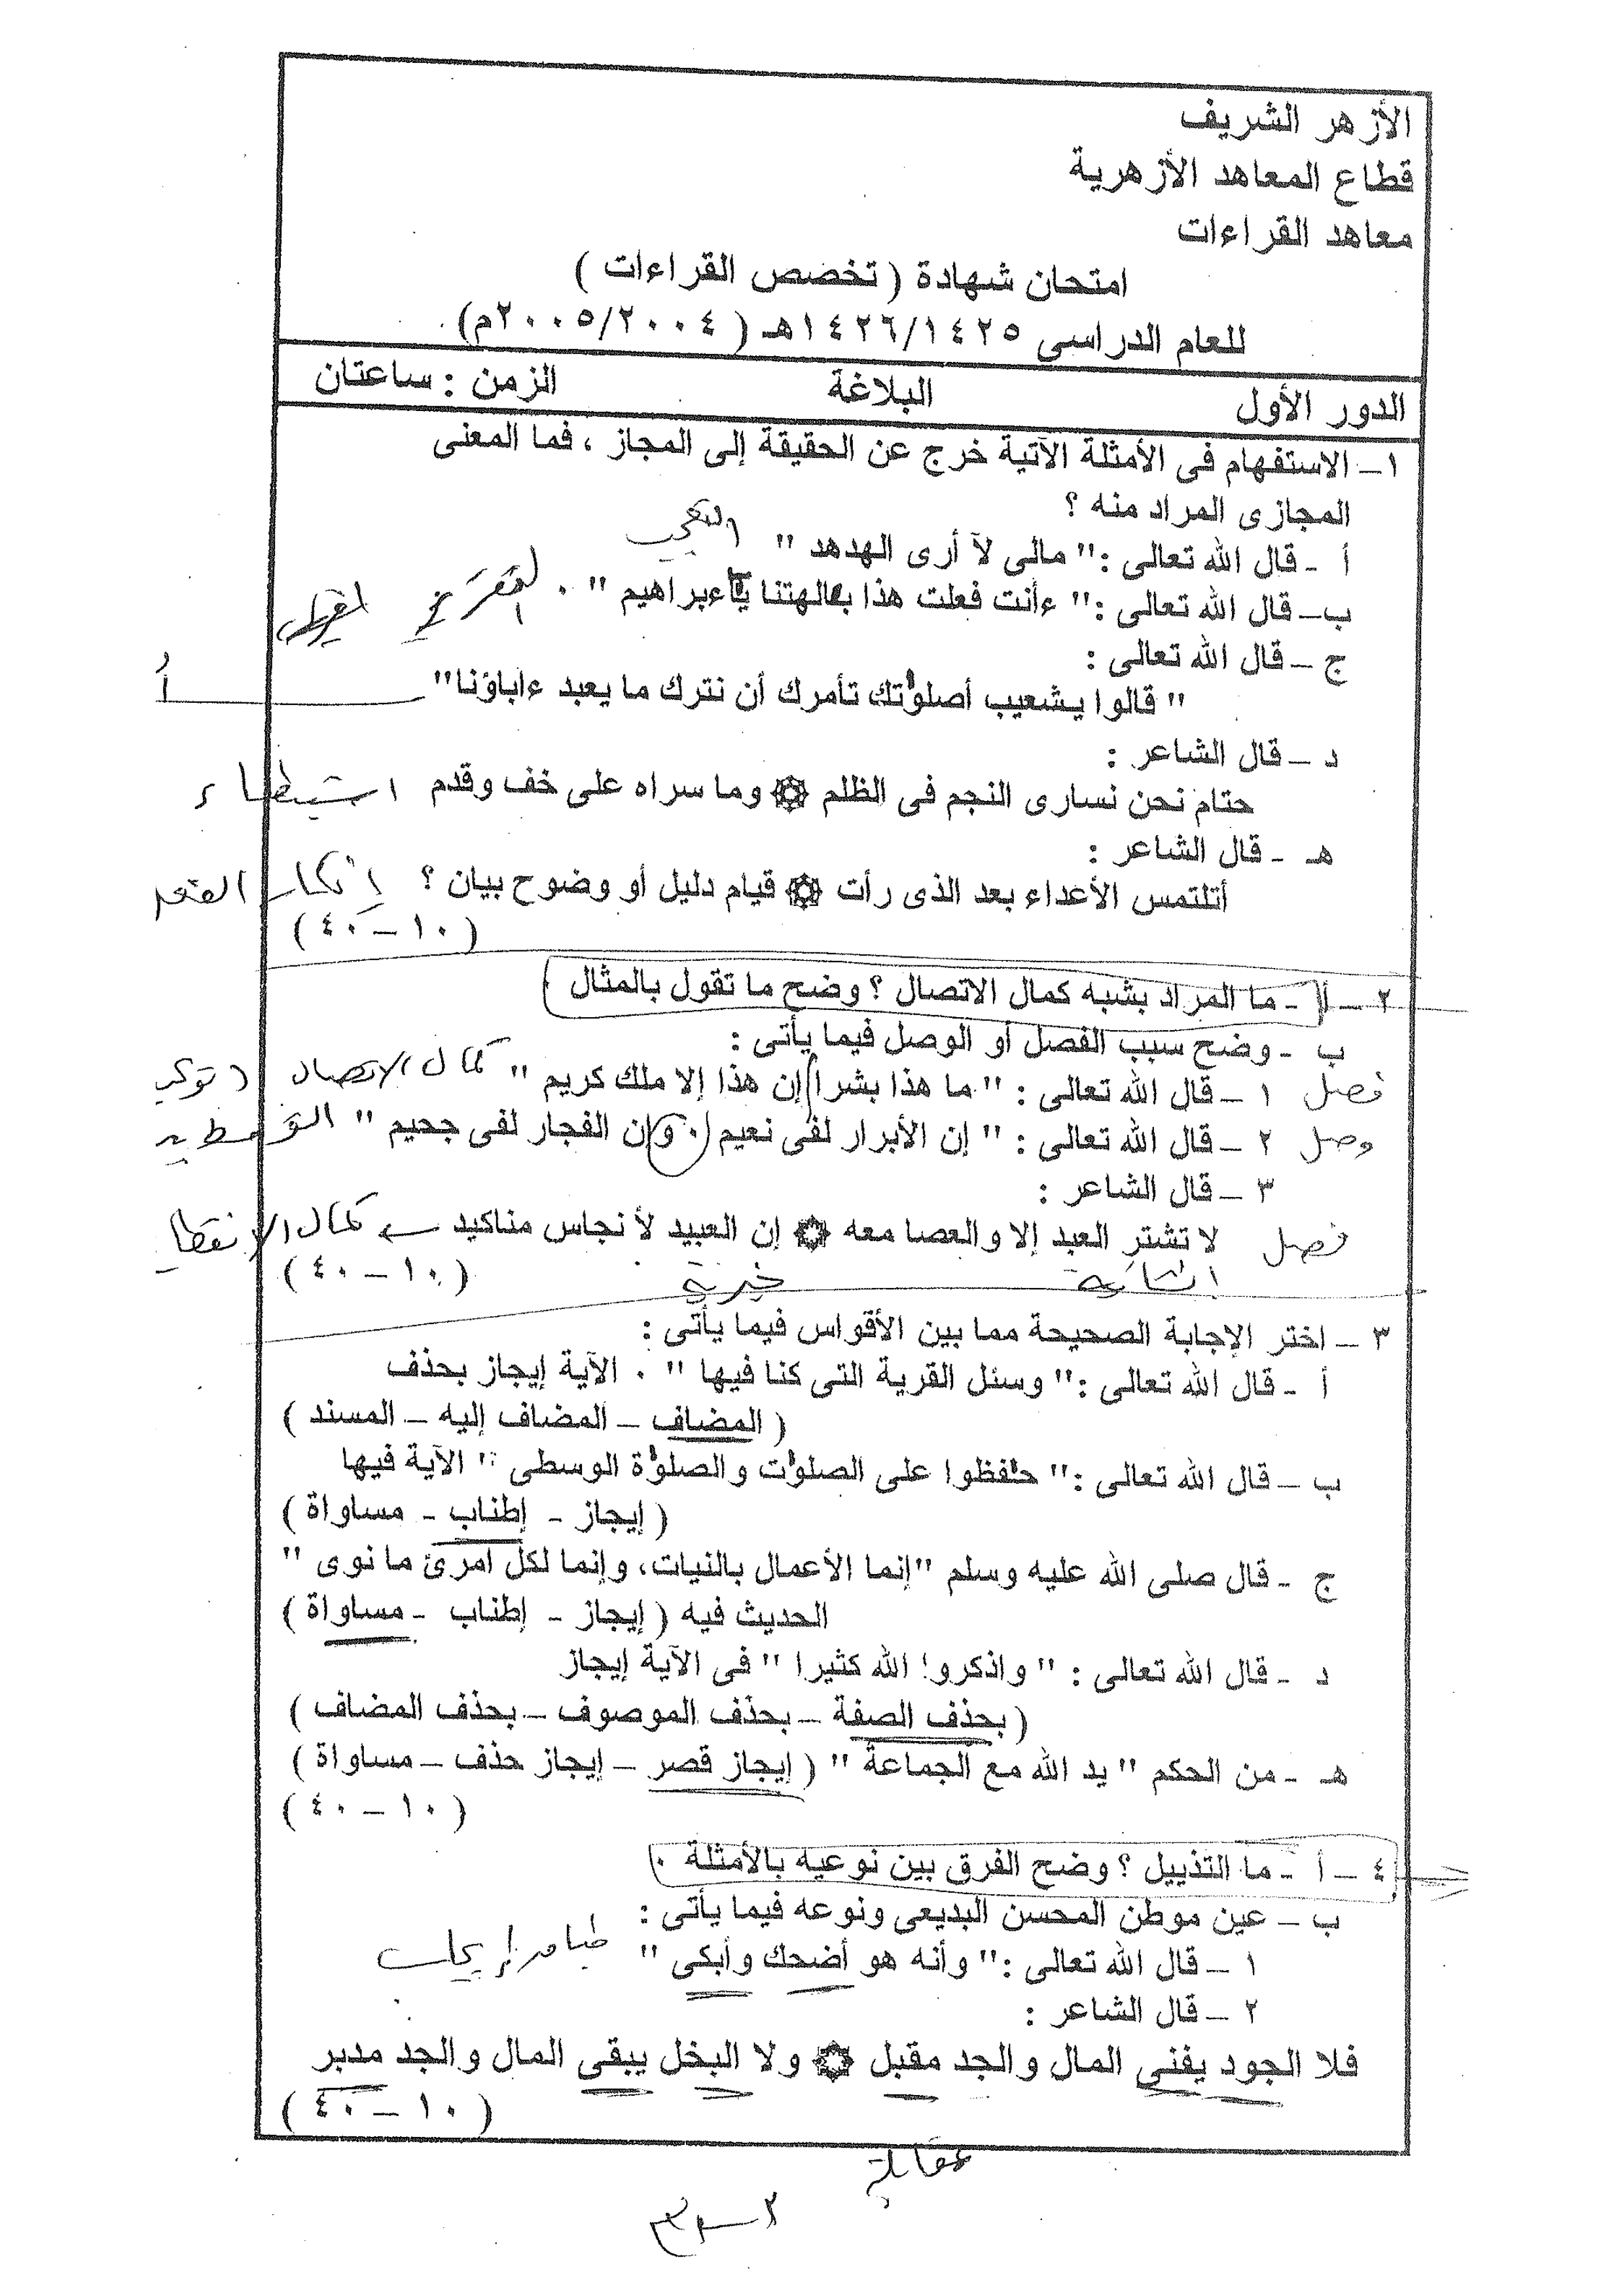 الأزهر الشريف
قطاع المعاهد الأزهرية
معاهد القراءات
امتحان شهادة ( تخصص القراءات )
للعام الدراسى ١٤٢٦/١٤٢٥هـ ( ٢٠٠٥/٢٠٠٤م)
الدور الأول البلاغة الزمن : ساعتان
١- الاستفهام فى الأمثلة الآتية خرج عن الحقيقة إلى المجاز ، فما المعنى
المجازى المراد منه ؟
أ - قال الله تعالى :" مالى لآ أرى الهدهد " التعجب
ب- قال الله تعالى :" ءأنت فعلت هذا بـالهتنا يـاءبراهيم " . التقرير
ج - قال الله تعالى :
" قالوا يشعيب أصلوٰتك تأمرك أن نترك ما يعبد ءاباؤنا"
د - قال الشاعر :
حتام نحن نسارى النجم فى الظلم ۞ وما سراه على خف وقدم استبطاء
هـ - قال الشاعر :
أتلتمس الأعداء بعد الذى رأت ۞ قيام دليل أو وضوح بيان ؟ إنكار
(١٠ – ٤٠)
٢ – أ - ما المراد بشبه كمال الاتصال ؟ وضح ما تقول بالمثال
ب - وضح سبب الفصل أو الوصل فيما يأتى :
فصل ١ – قال الله تعالى : " ما هذا بشرا إن هذا إلا ملك كريم " كمال الاتصال
وصل ٢ – قال الله تعالى : " إن الأبرار لفى نعيم . وإن الفجار لفى جحيم "
٣ – قال الشاعر :
فصل لا تشترِ العبد إلا والعصا معه ۞ إن العبيد لأنجاس مناكيد كمال الانقطاع
إنشائية خبرية
(١٠ – ٤٠)
٣ – اختر الإجابة الصحيحة مما بين الأقواس فيما يأتى :
أ - قال الله تعالى :" وسئل القرية التى كنا فيها " . الآية إيجاز بحذف
( المضاف – المضاف إليه – المسند )
ب – قال الله تعالى :" حٰفظوا على الصلوٰت والصلوٰة الوسطى " الآية فيها
( إيجاز - إطناب - مساواة )
ج - قال صلى الله عليه وسلم "إنما الأعمال بالنيات، وإنما لكل امرئ ما نوى "
الحديث فيه ( إيجاز - إطناب - مساواة )
د - قال الله تعالى : " واذكروا الله كثيرا " فى الآية إيجاز
( بحذف الصفة – بحذف الموصوف – بحذف المضاف )
هـ - من الحكم " يد الله مع الجماعة " ( إيجاز قصر – إيجاز حذف – مساواة )
(١٠ – ٤٠)
٤ – أ - ما التذييل ؟ وضح الفرق بين نوعيه بالأمثلة .
ب – عين موطن المحسن البديعى ونوعه فيما يأتى :
١ – قال الله تعالى :" وأنه هو أضحك وأبكى " طباق إيجاب
٢ – قال الشاعر :
فلا الجود يفنى المال والجد مقبل ۞ ولا البخل يبقى المال والجد مدبر
(١٠ – ٤٠)
مقابلة